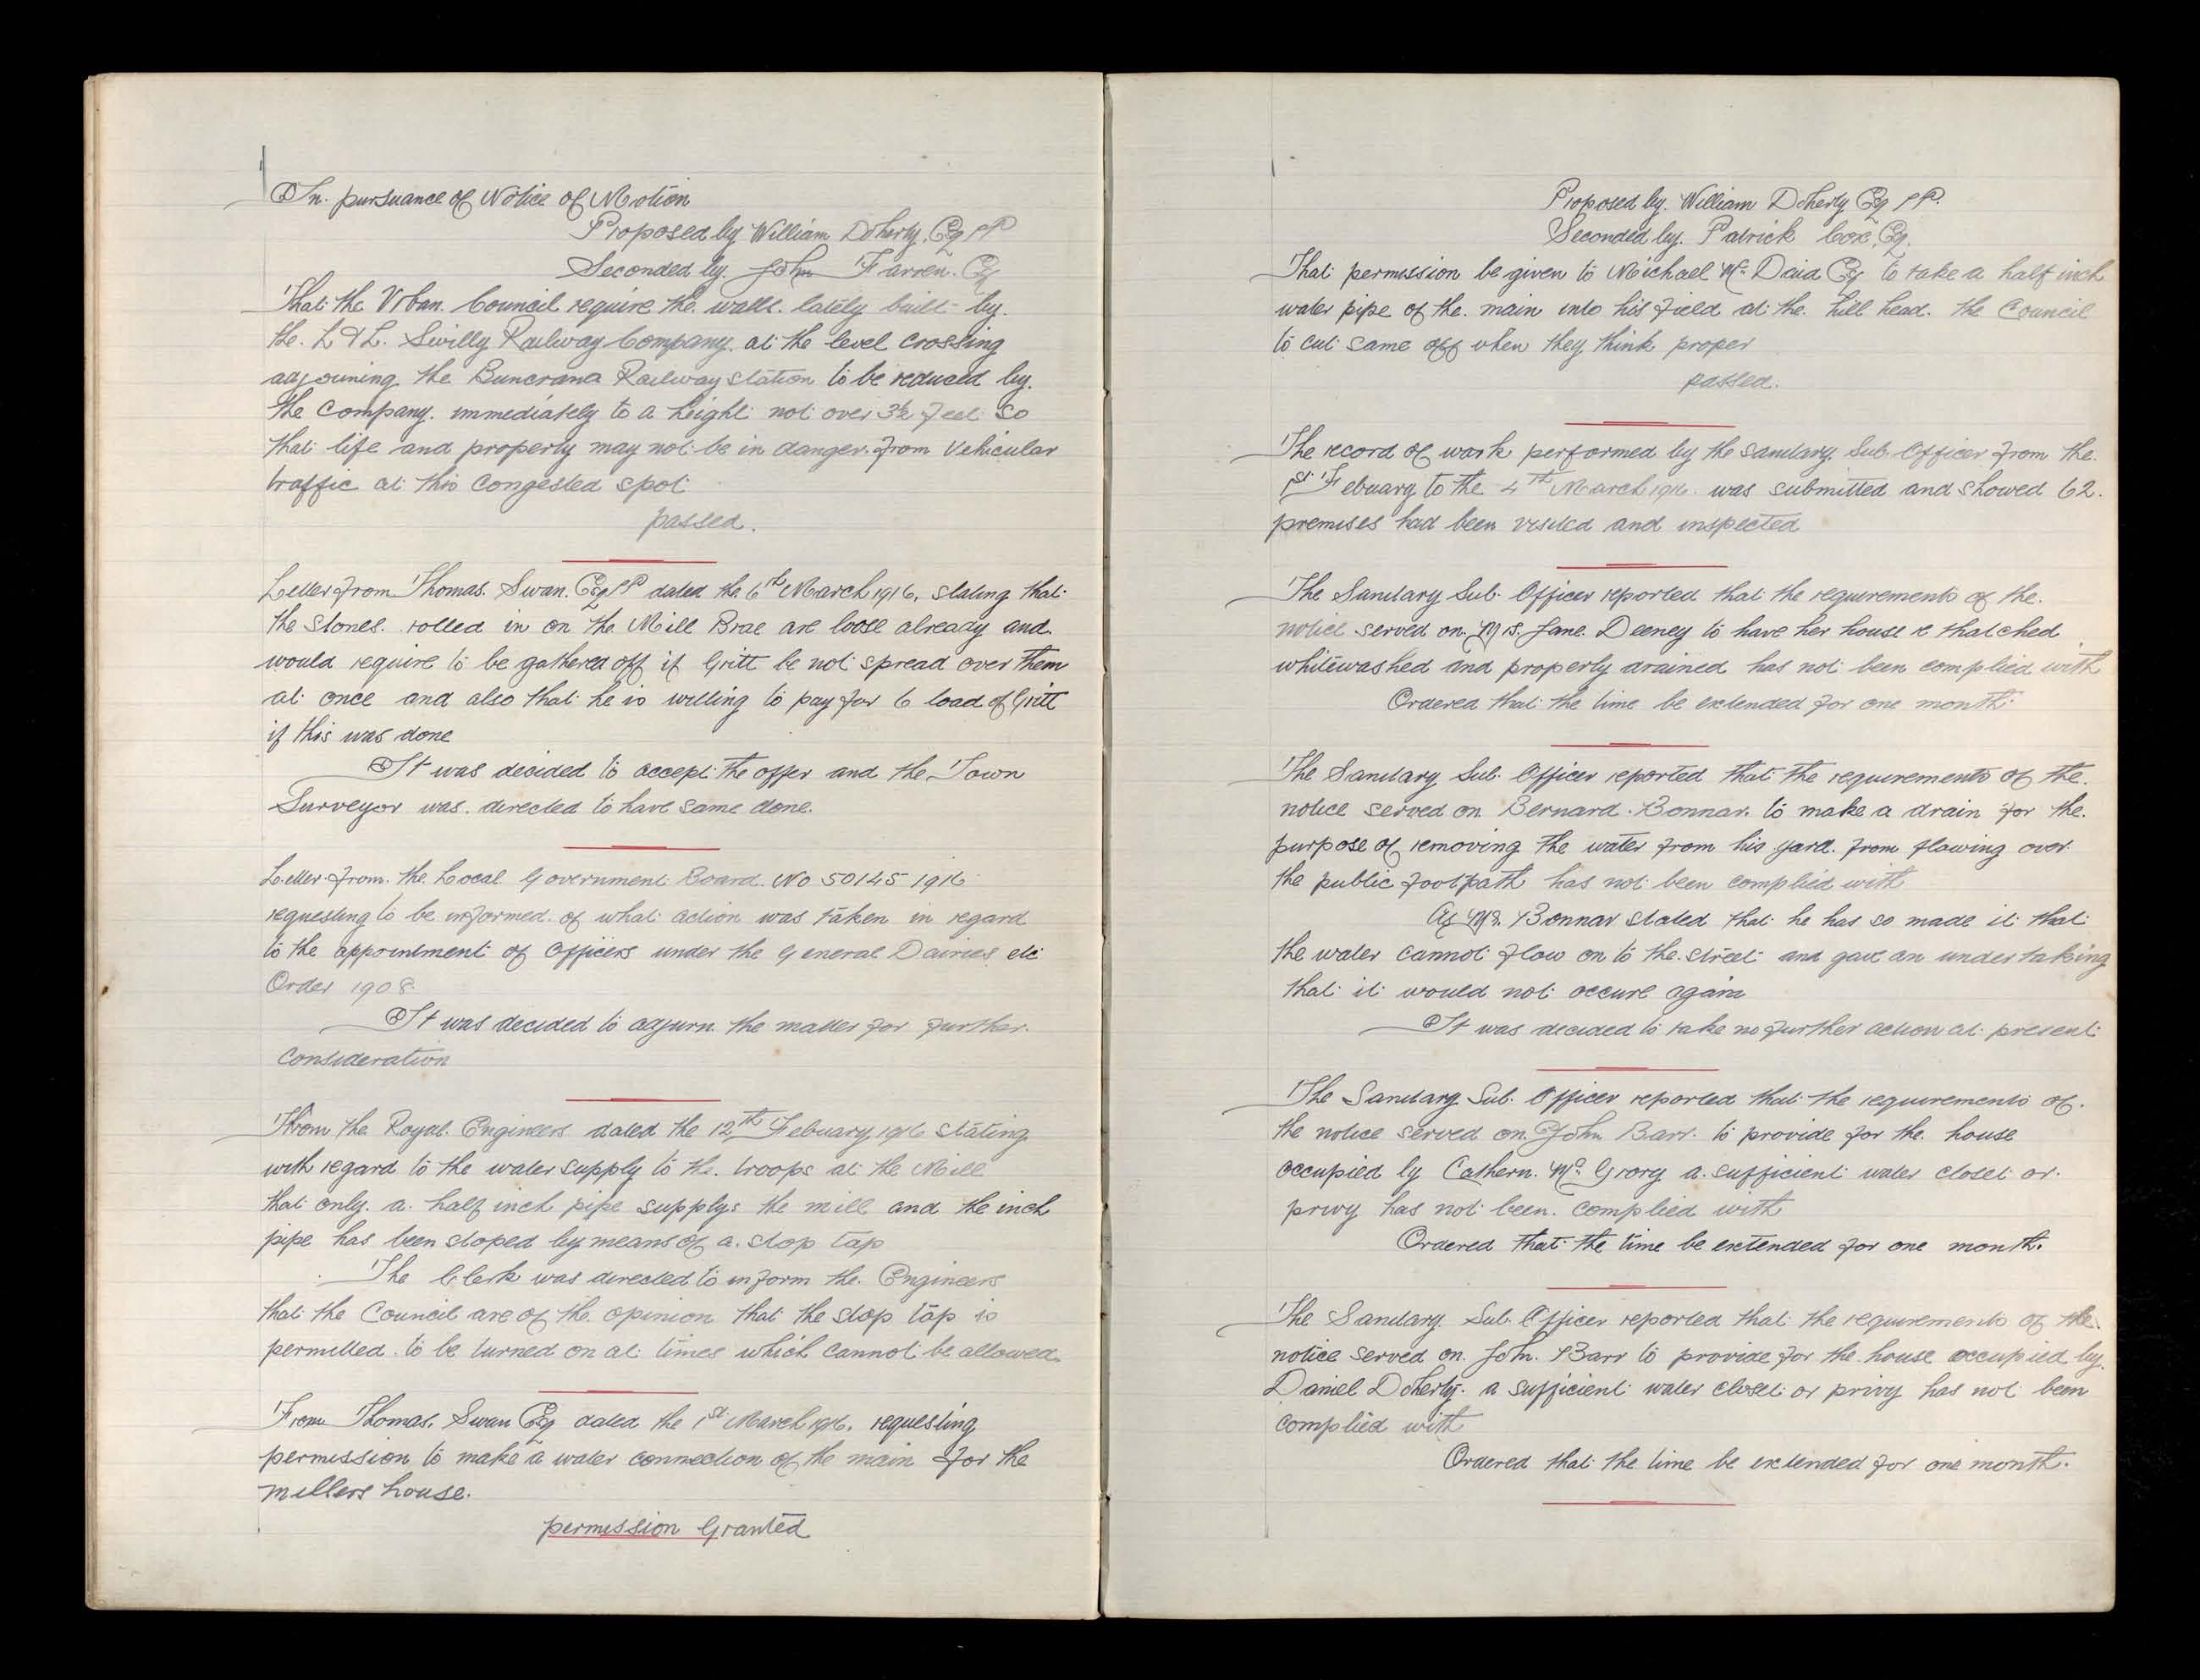 In pursuance of Notice of Motion
Proposed by William Doherty, Esq JP
Seconded by John Farren. Esq
That the Urban Council require the walls lately built by
the L & L. Swilly Railway Company at the level crossing
adjoining the Buncrana Railway station to be reduced by
the Company immediately to a height not over 3½ feet so
that life and property may not be in danger from Vehicular
traffic at this Congested spot
passed.
Letter from Thomas Swan. Esq JP dated the 6th March 1916, stating that
the stones rolled in on the Mill Brae are loose already and
would require to be gathered off if Gritt be not spread over them
at once and also that he is willing to pay for 6 load of Gritt
if this was done
It was decided to accept the offer and the Town
Surveyor was directed to have same done.
Letter from the Local Government Board No 50145 1916
requesting to be informed of what action was taken in regard
to the appointment of Officers under the General Dairies etc
Order 1908.
It was decided to adjurn the matter for further
consideration
From the Royal Engineers dated the 12th Febuary 1916 stating
with regard to the water supply to the troops at the Mill
that only a half inch pipe supplys the mill and the inch
pipe has been stoped by means of a stop tap
The Clerk was directed to inform the Engineers
that the Council are of the opinion that the stop tap is
permitted to be turned on at times which cannot be allowed.
From Thomas Swan Esq dated the 1st March 1916, requesting
permission to make a water connection of the main for the
millers house.
permission Granted
Proposed by William Doherty Esq JP.
Seconded by Patrick Cox, Esq.
That permission be given to Michael Mc Daid Esq to take a half inch
water pipe of the main into his field at the hill head. the Council
to cut same off when they think proper
passed.
The record of work performed by the Sanitary Sub Officer from the
1st Febuary to the 4th March 1916 was submitted and showed 62
premises had been visited and inspected
The Sanitary Sub. Officer reported that the requirements of the
notice served on Mrs. Jane Deeney to have her house re thatched
whitewashed and properly drained has not been complied with
Ordered that the time be extended for one month
The Sanitary Sub. Officer reported that the requirements of the
notice served on Bernard Bonnar to make a drain for the
purpose of removing the water from his yard from flowing over
the public footpath has not been complied with
As Mr. Bonnar stated that he has so made it that
the water cannot flow on to the street and gave an undertaking
that it would not occure again
It was decided to take no further action at present
The Sanitary Sub. Officer reported that the requirements of
the notice served on John Barr to provide for the house
occupied by Cathern Mc Grory a sufficient water closet or
privy has not been complied with
Ordered that the time be extended for one month.
The Sanitary Sub. Officer reported that the requirements of the
notice served on John Barr to provide for the house occupied by
Daniel Doherty a sufficient water closet or privy has not been
complied with
Ordered that the time be extended for one month.